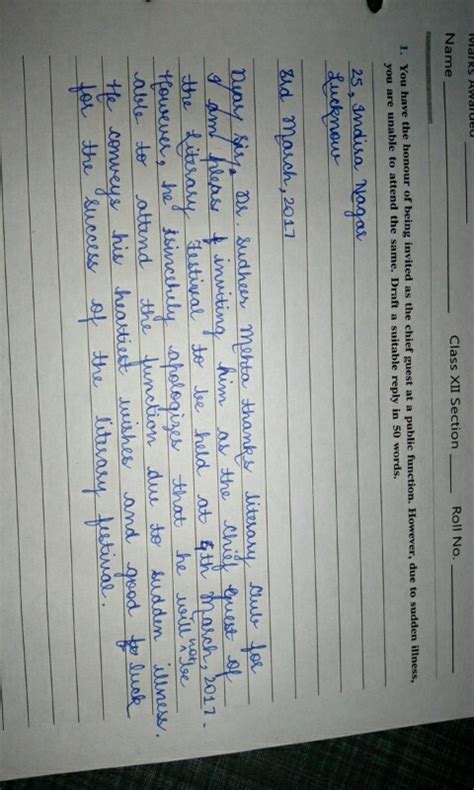 Marks Awarded
Name Class XII Section Roll No.
1. You have the honour of being invited as the chief guest at a public function. However, due to sudden illness,
you are unable to attend the same. Draft a suitable reply in 50 words.
25, Indira Nagar
Lucknow
3rd March, 2017
Dear Sir, Dr. Sudheer Mehta thanks literary club for
I am pleas inviting him as the chief guest of
the Literary Festival to be held at 5th March, 2017.
However, he sincerely apologizes that he will not be
able to attend the function due to sudden illness.
He conveys his heartiest wishes and good luck
for the success of the literary festival.